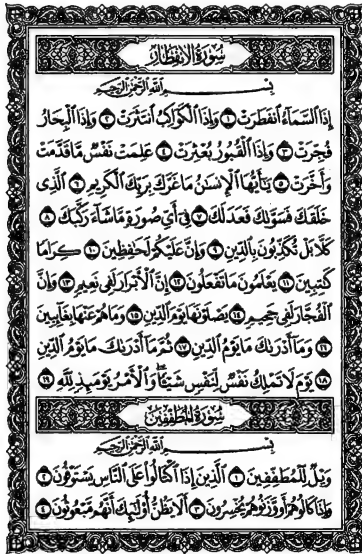 سُورَةُ الِانفِطَارِ
بِسْمِ اللَّهِ الرَّحْمَٰنِ الرَّحِيمِ
إِذَا السَّمَاءُ انفَطَرَتْ ١ وَإِذَا الْكَوَاكِبُ انتَثَرَتْ ٢ وَإِذَا الْبِحَارُ
فُجِّرَتْ ٣ وَإِذَا الْقُبُورُ بُعْثِرَتْ ٤ عَلِمَتْ نَفْسٌ مَّا قَدَّمَتْ
وَأَخَّرَتْ ٥ يَٰأَيُّهَا الْإِنسَٰنُ مَا غَرَّكَ بِرَبِّكَ الْكَرِيمِ ٦ الَّذِي
خَلَقَكَ فَسَوَّىٰكَ فَعَدَلَكَ ٧ فِي أَيِّ صُورَةٍ مَّا شَاءَ رَكَّبَكَ ٨
كَلَّا بَلْ تُكَذِّبُونَ بِالدِّينِ ٩ وَإِنَّ عَلَيْكُمْ لَحَٰفِظِينَ ١٠ كِرَامًا
كَٰتِبِينَ ١١ يَعْلَمُونَ مَا تَفْعَلُونَ ١٢ إِنَّ الْأَبْرَارَ لَفِي نَعِيمٍ ١٣ وَإِنَّ
الْفُجَّارَ لَفِي جَحِيمٍ ١٤ يَصْلَوْنَهَا يَوْمَ الدِّينِ ١٥ وَمَا هُمْ عَنْهَا بِغَائِبِينَ
١٦ وَمَا أَدْرَىٰكَ مَا يَوْمُ الدِّينِ ١٧ ثُمَّ مَا أَدْرَىٰكَ مَا يَوْمُ الدِّينِ
١٨ يَوْمَ لَا تَمْلِكُ نَفْسٌ لِّنَفْسٍ شَيْئًا وَالْأَمْرُ يَوْمَئِذٍ لِّلَّهِ ١٩
سُورَةُ المُطَفِّفِينَ
بِسْمِ اللَّهِ الرَّحْمَٰنِ الرَّحِيمِ
وَيْلٌ لِّلْمُطَفِّفِينَ ١ الَّذِينَ إِذَا اكْتَالُوا عَلَى النَّاسِ يَسْتَوْفُونَ ٢
وَإِذَا كَالُوهُمْ أَو وَّزَنُوهُمْ يُخْسِرُونَ ٣ أَلَا يَظُنُّ أُولَٰئِكَ أَنَّهُم مَّبْعُوثُونَ ٤